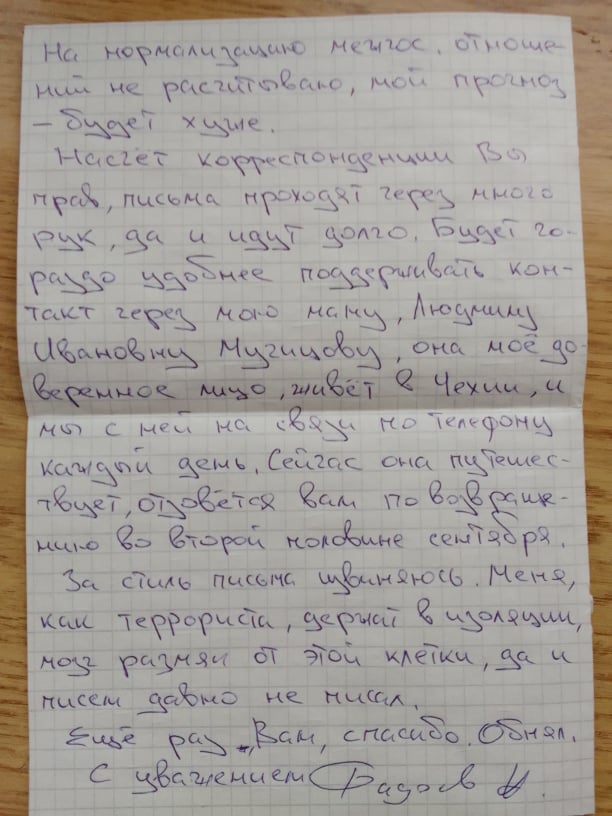 На нормализацию межгос. отноше-
ний не расчитываю, мой прогноз
– будет хуже.
Насчёт корреспонденции Вы
прав, письма проходят через много
рук, да и идут долго. Будет го-
раздо удобнее поддерживать кон-
такт через мою маму, Людмилу
Ивановну Мучицову, она моё до-
веренное лицо, живёт в Чехии, и
мы с ней на связи по телефону
каждый день. Сейчас она путешес-
твует, отзовётся вам по возвраще-
нию во второй половине сентября.
За стиль письма извиняюсь. Меня,
как террориста, держат в изоляции,
мозг размяк от этой клетки, да и
писем давно не писал.
Ещё раз, Вам, спасибо. Обнял.
С уважением